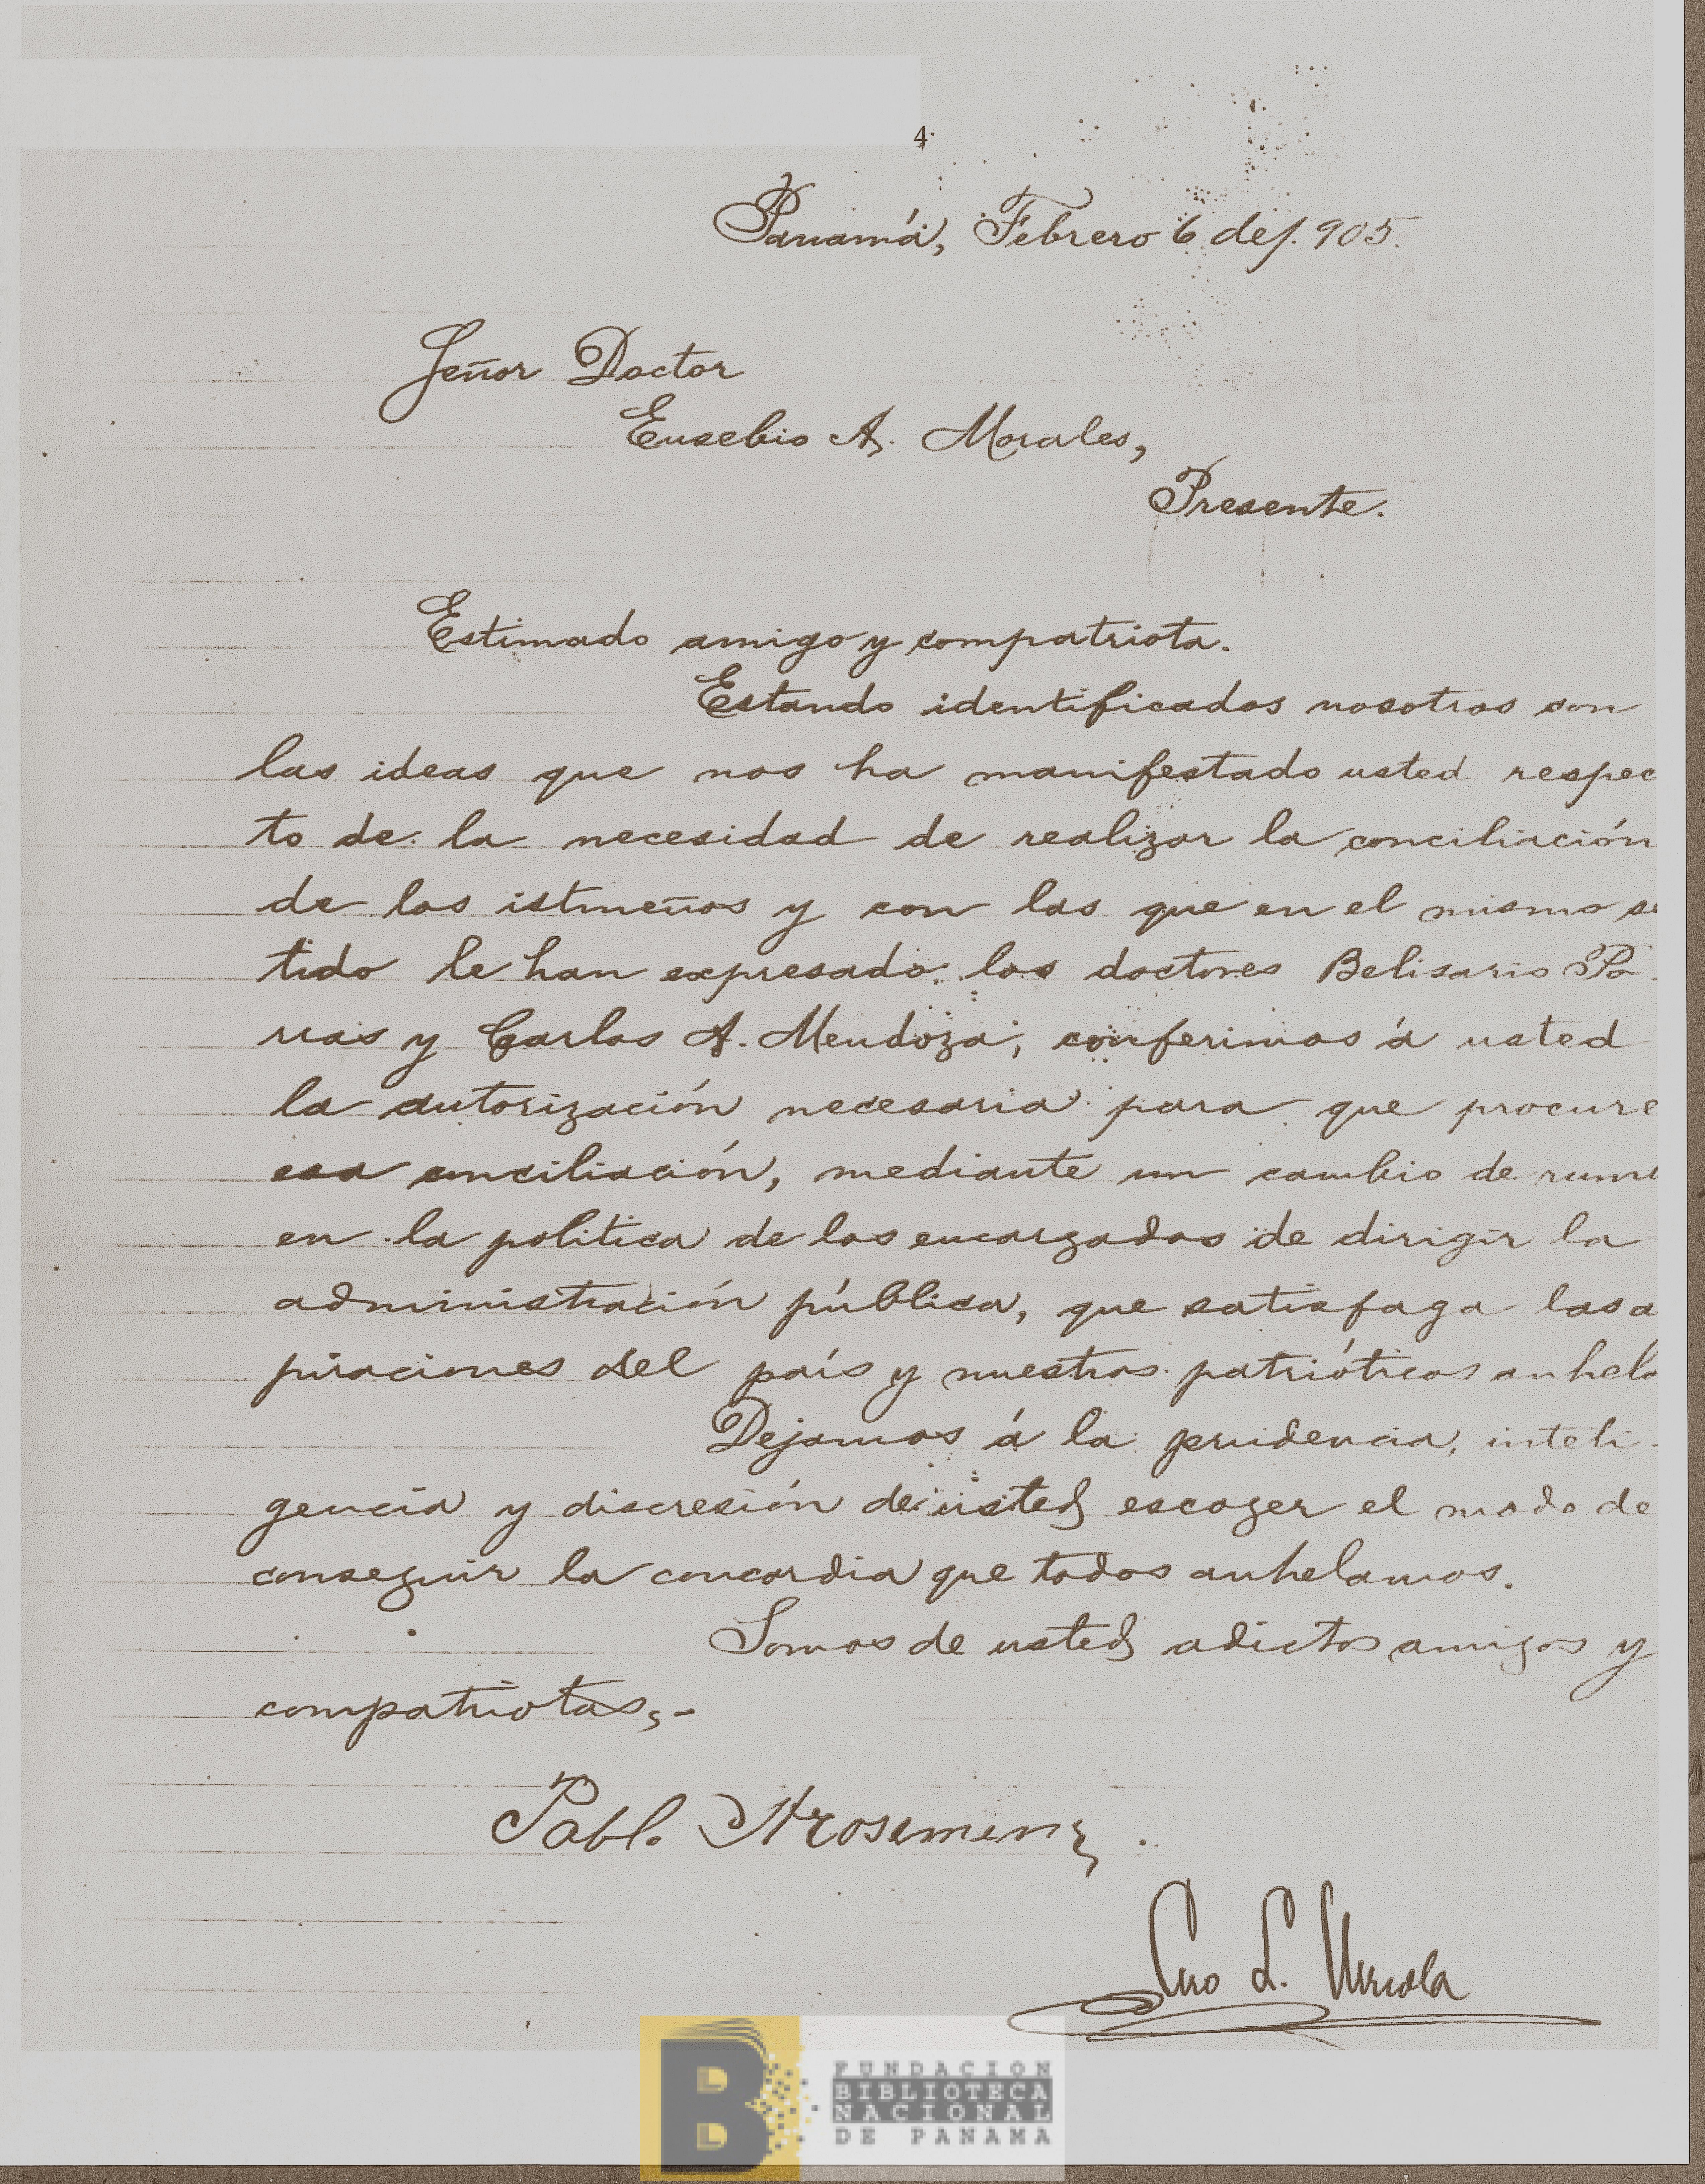 4.
Panamá, Febrero 6 de 1.905.
Señor Doctor
Eusebio A. Morales,
Presente.
Estimado amigo y compatriota.
Estando identificados nosotros con
las ideas que nos ha manifestado usted respec
to de la necesidad de realizar la conciliación
de los istmeños y con las que en el mismo se
tido le han expresado los doctores Belisario Po
rras y Carlos A. Mendoza, conferimos á usted
la autorización necesaria para que procure
esa conciliación, mediante un cambio de rum
en la politica de los encargados de dirigir la
administración pública, que satisfaga las a
piraciones del país y nuestros patrióticos anhelo
Dejamos á la prudencia, inteli-
gencia y discresión de usted escoger el modo de
conseguir la concordia que todos anhelamos.
Somos de usted adictos amigos y
compatriotas,-
Pablo Arosemena.
Ciro L. Urriola
FUNDACION
BIBLIOTECA
NACIONAL
DE PANAMA